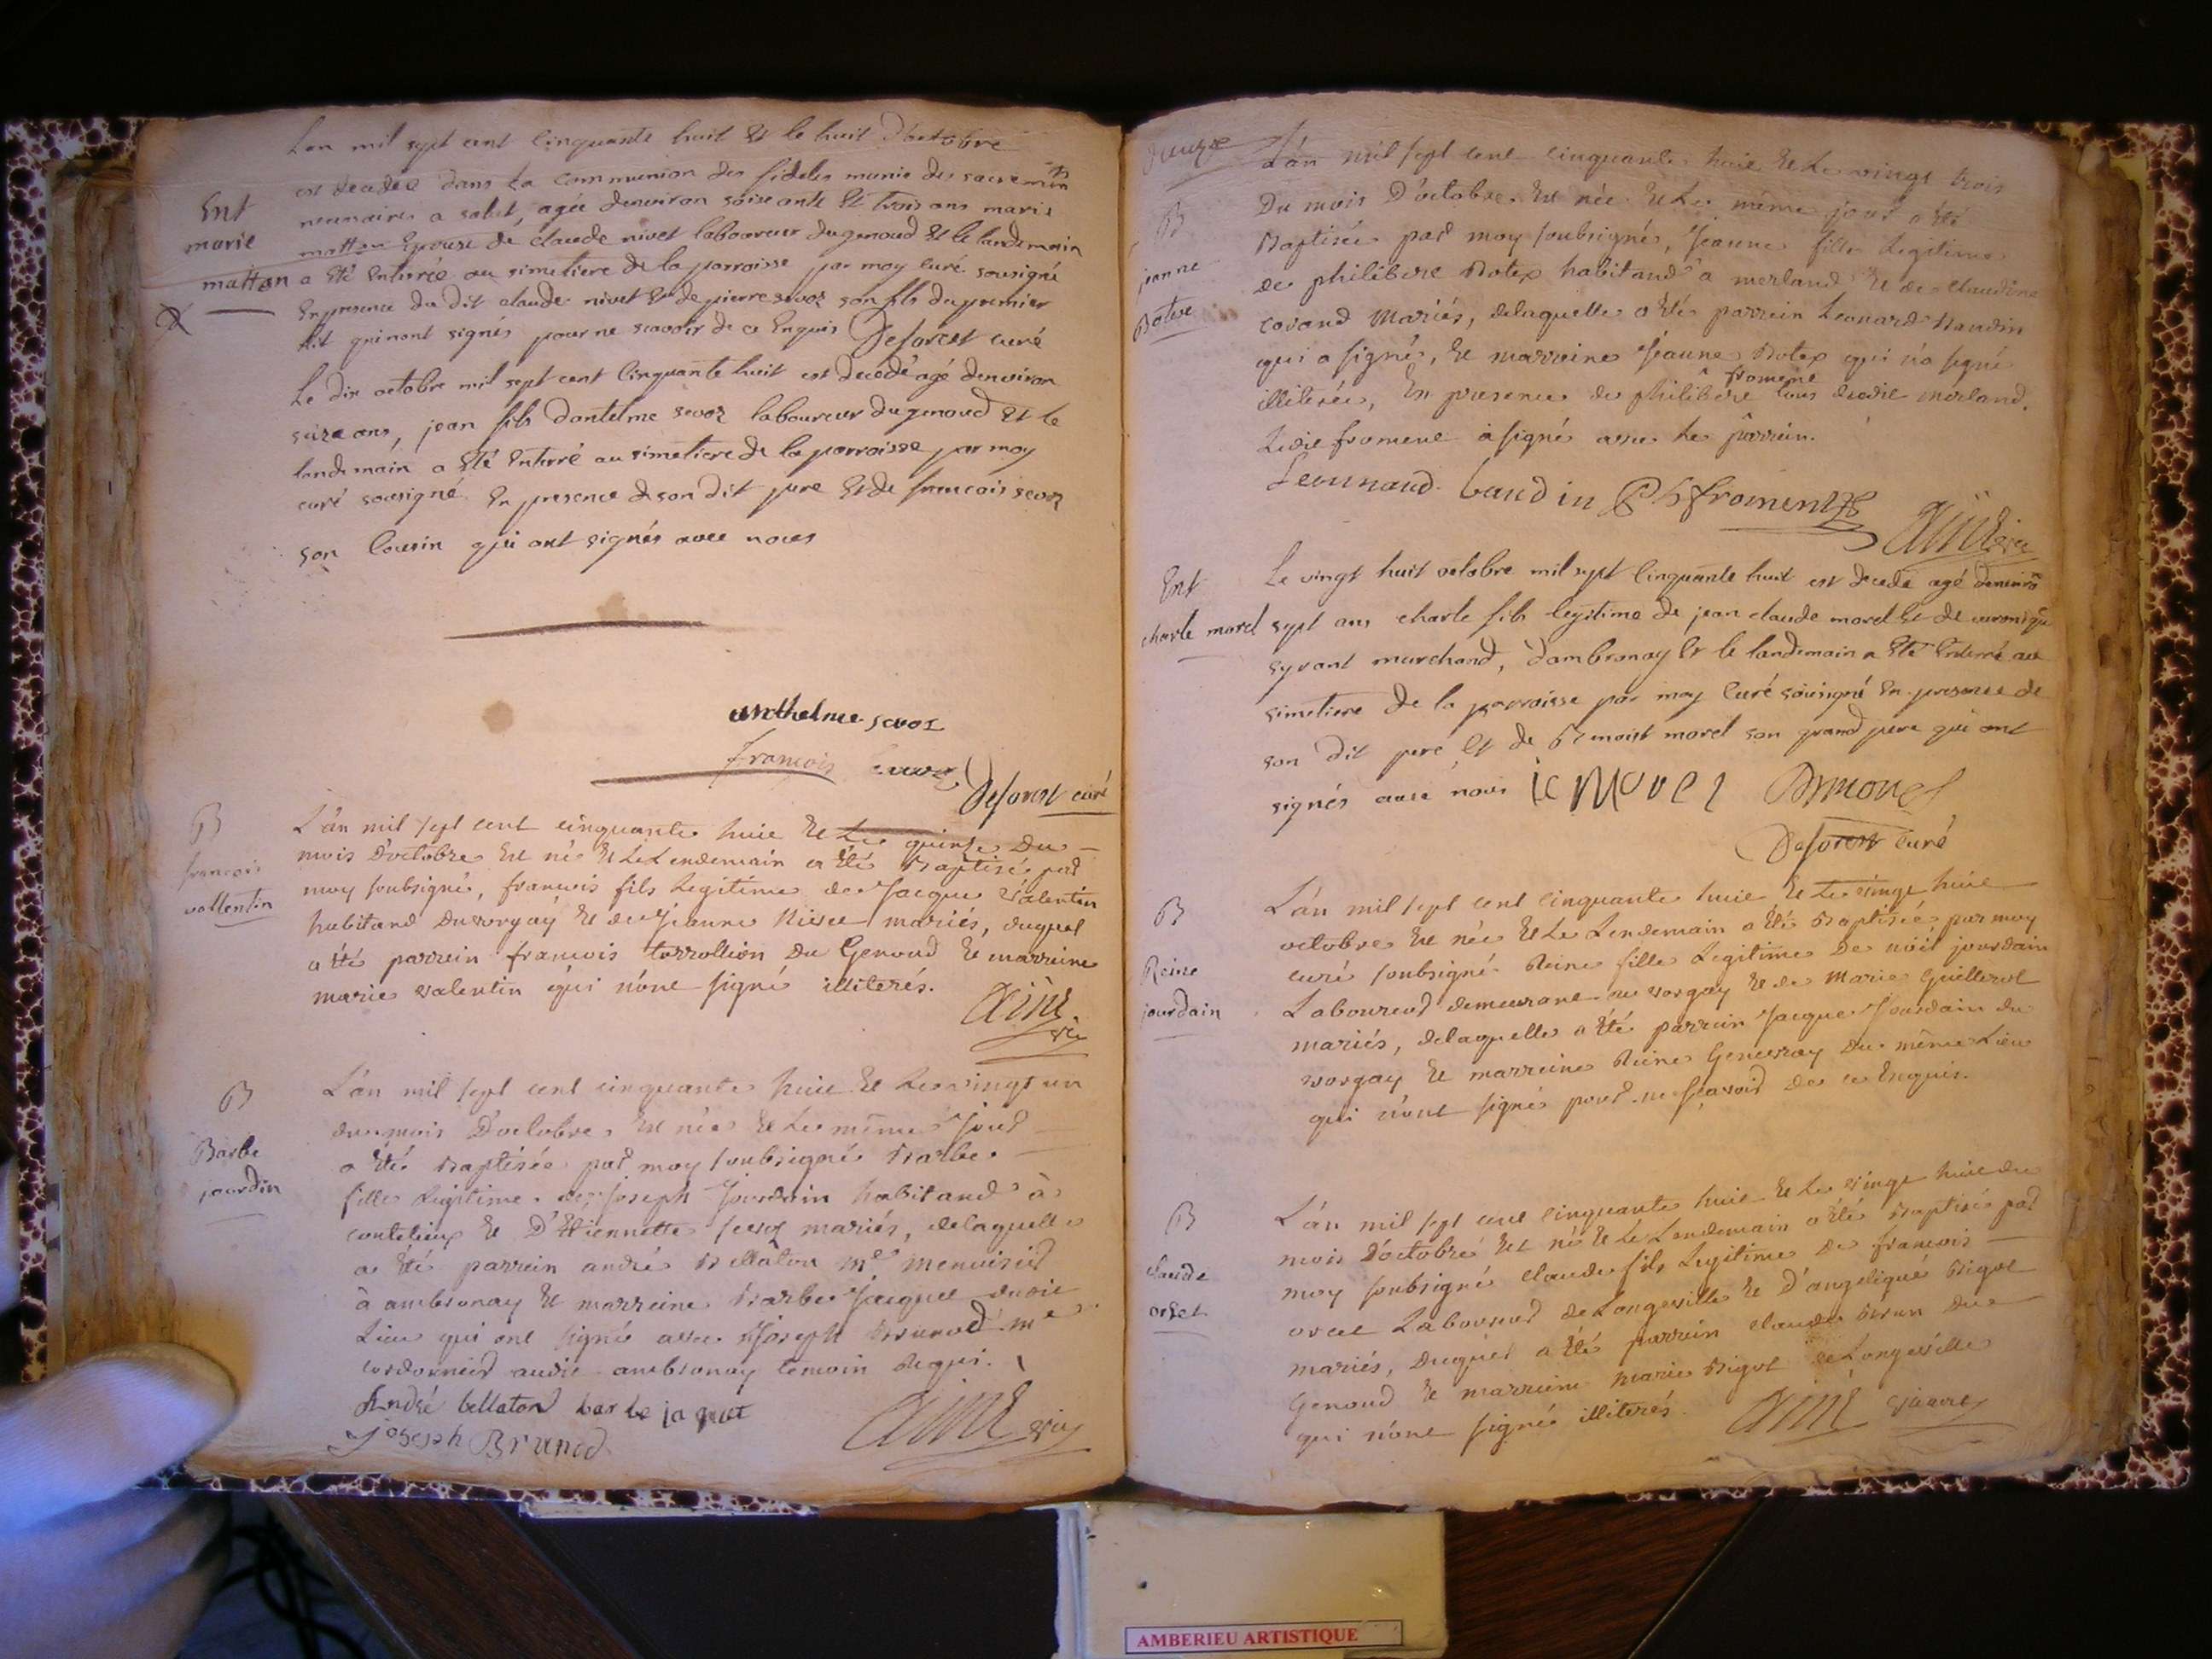 Lan mil sept cent cinquante huit et le huit d'octobre
est decedée dans la communion des fideles munie des sacremens
Ent
necessaires a salut, agée denviron soixante et trois ans marie
marie
mattan Epouse de claude nivet laboureur du genoud et le landemain
mattan
a été enterrée au simetiere de la parroisse par moy curé sousigné
En presence du dit claude nivet et de pierre sevoz son fils du premier
lit qui nont signés pour ne scavoir de ce Enquis Deforest curé
Le dix octobre mil sept cent cinquante huit est decédé agé denviron
seize ans, jean fils dantelme sevoz laboureur du genoud et le
landemain a été enterré au simetiere de la parroisse par moy
curé sousigné En presence de son dit pere et de francois sevoz
son cousin qui ont signés avec nous
anthelme sevoz
francois sevoz
Deforest curé
B
francois
vallentin
L'an mil sept cent cinquante huit et le quinze du
mois d'octobre est né et le lendemain a été Baptisé par
moy soubsigné, francois fils legitime de Jacque Valentin
habitand du vorgay et de Jeanne Nivet mariés, duquel
a été parrein francois torrollion du Genoud et marreine
marie valentin qui n'ont signé illiterés.
Aimé vic
B
Barbe
jourdin
L'an mil sept cent cinquante huit et le vingt un
du mois D'octobre, est née et le même jour
a été Baptisée par moy soubsigné Barbe
fille legitime de joseph Jourdain habitand à
coutelieux et D'Etiennette sevoz mariés, delaquelle
a été parrein andré Bellaton me menuisier
à ambronay et marreine Barbe Jacquet dudit
Lieu qui ont signé avec joseph Brunod me
cordonnier audit ambronay temoin requi.
André bellaton barbe jaquet
joseph Brunod
Aimé vic
L'an mil sept cent cinquante huit et le vingt trois
B
jeanne
Botex
Du mois D'octobre est née et le même jour a été
Baptisée par moy soubsigné, Jeanne fille legitime
de philibert Botex habitand a merland et de claudine
covand Mariés, delaquelle a été parrein Leonard Baudin
qui a signé, et marraine Jeanne Botex qui n'a signé
froment
illiterée, En presence de philibert tous dudit merland.
Ledit froment a signé avec le parrein.
Leonnard baudin Ph froment
Aimé vic
Ent
charle morel
Le vingt huit octobre mil sept cinquante huit est decedé agé denviron
sept ans charle fils legitime de jean claude morel et de veronique
syvant marchand, dambronay et le landemain a été enterré au
simetiere de la parroisse par moy curé sousigné En presence de
son dit pere et de Benoist morel son grand pere qui ont
signés avec nous ic Morel B morel
Deforest curé
B
Reine
jourdain
L'an mil sept cent cinquante huit et le vingt huit
octobre est née et le Lendemain a été Baptisée par moy
curé soubsigné Reine fille Legitime de noël jourdain
Laboureur demeurant au vorgay et de Marie Guillerot
mariés, delaquelle a été parrein Jacque Jourdain du
vorgay et marreine Reine Genevray du même Lieu
qui n'ont signé pour ne sçavoir de ce Enquis.
B
claude
orset
L'an mil sept cent cinquante huit et le vingt huit du
mois D'octobre est né et le Lendemain a été Baptisé par
moy soubsigné claude fils Legitime de francois
orset Laboureur de Longeville et D'angelique Bigot
mariés, duquel a été parrein claude Brun du
Genoud et marreine marie Bigot de Longeville
qui n'ont signé illiterés. Aimé vicaire
AMBERIEU ARTISTIQUE